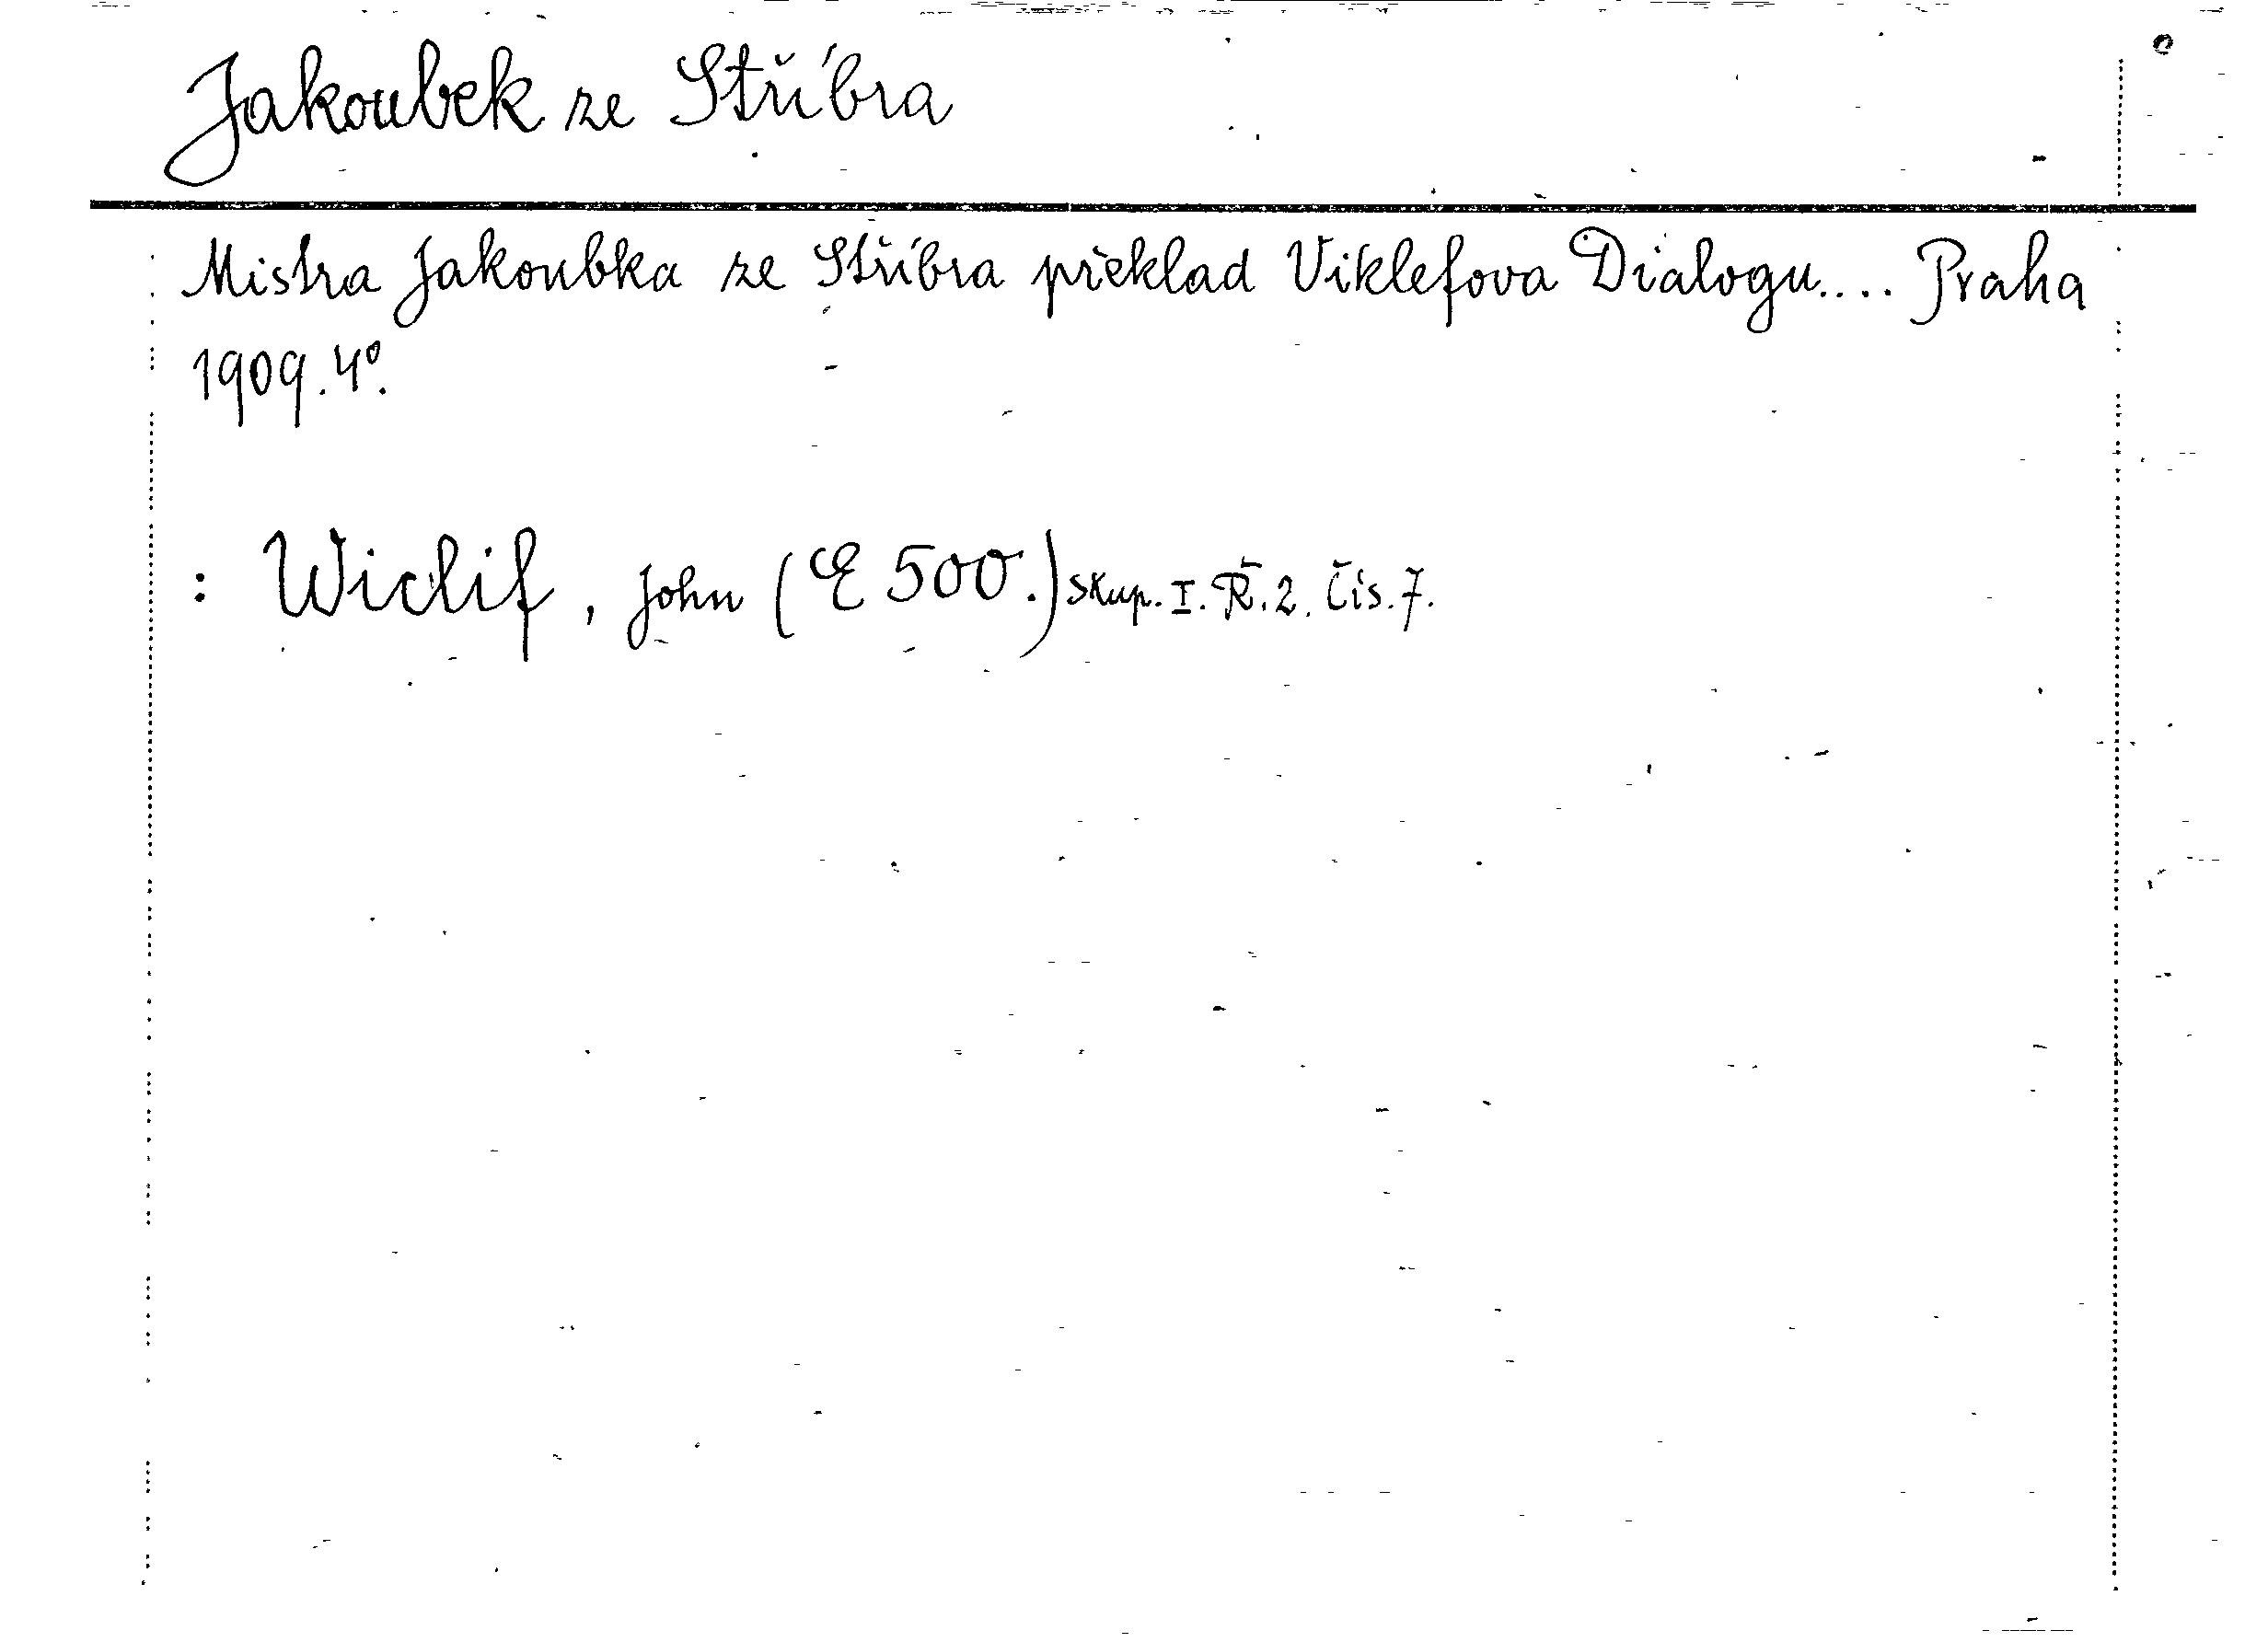 Jakoubek ze Stříbra
Mistra Jakoubka ze Stříbra překlad Viklefova Dialogu.... Praha
1909. 4°.
: Wiclif, John (E 500.) skup. I. Ř. 2. Čís. 7.